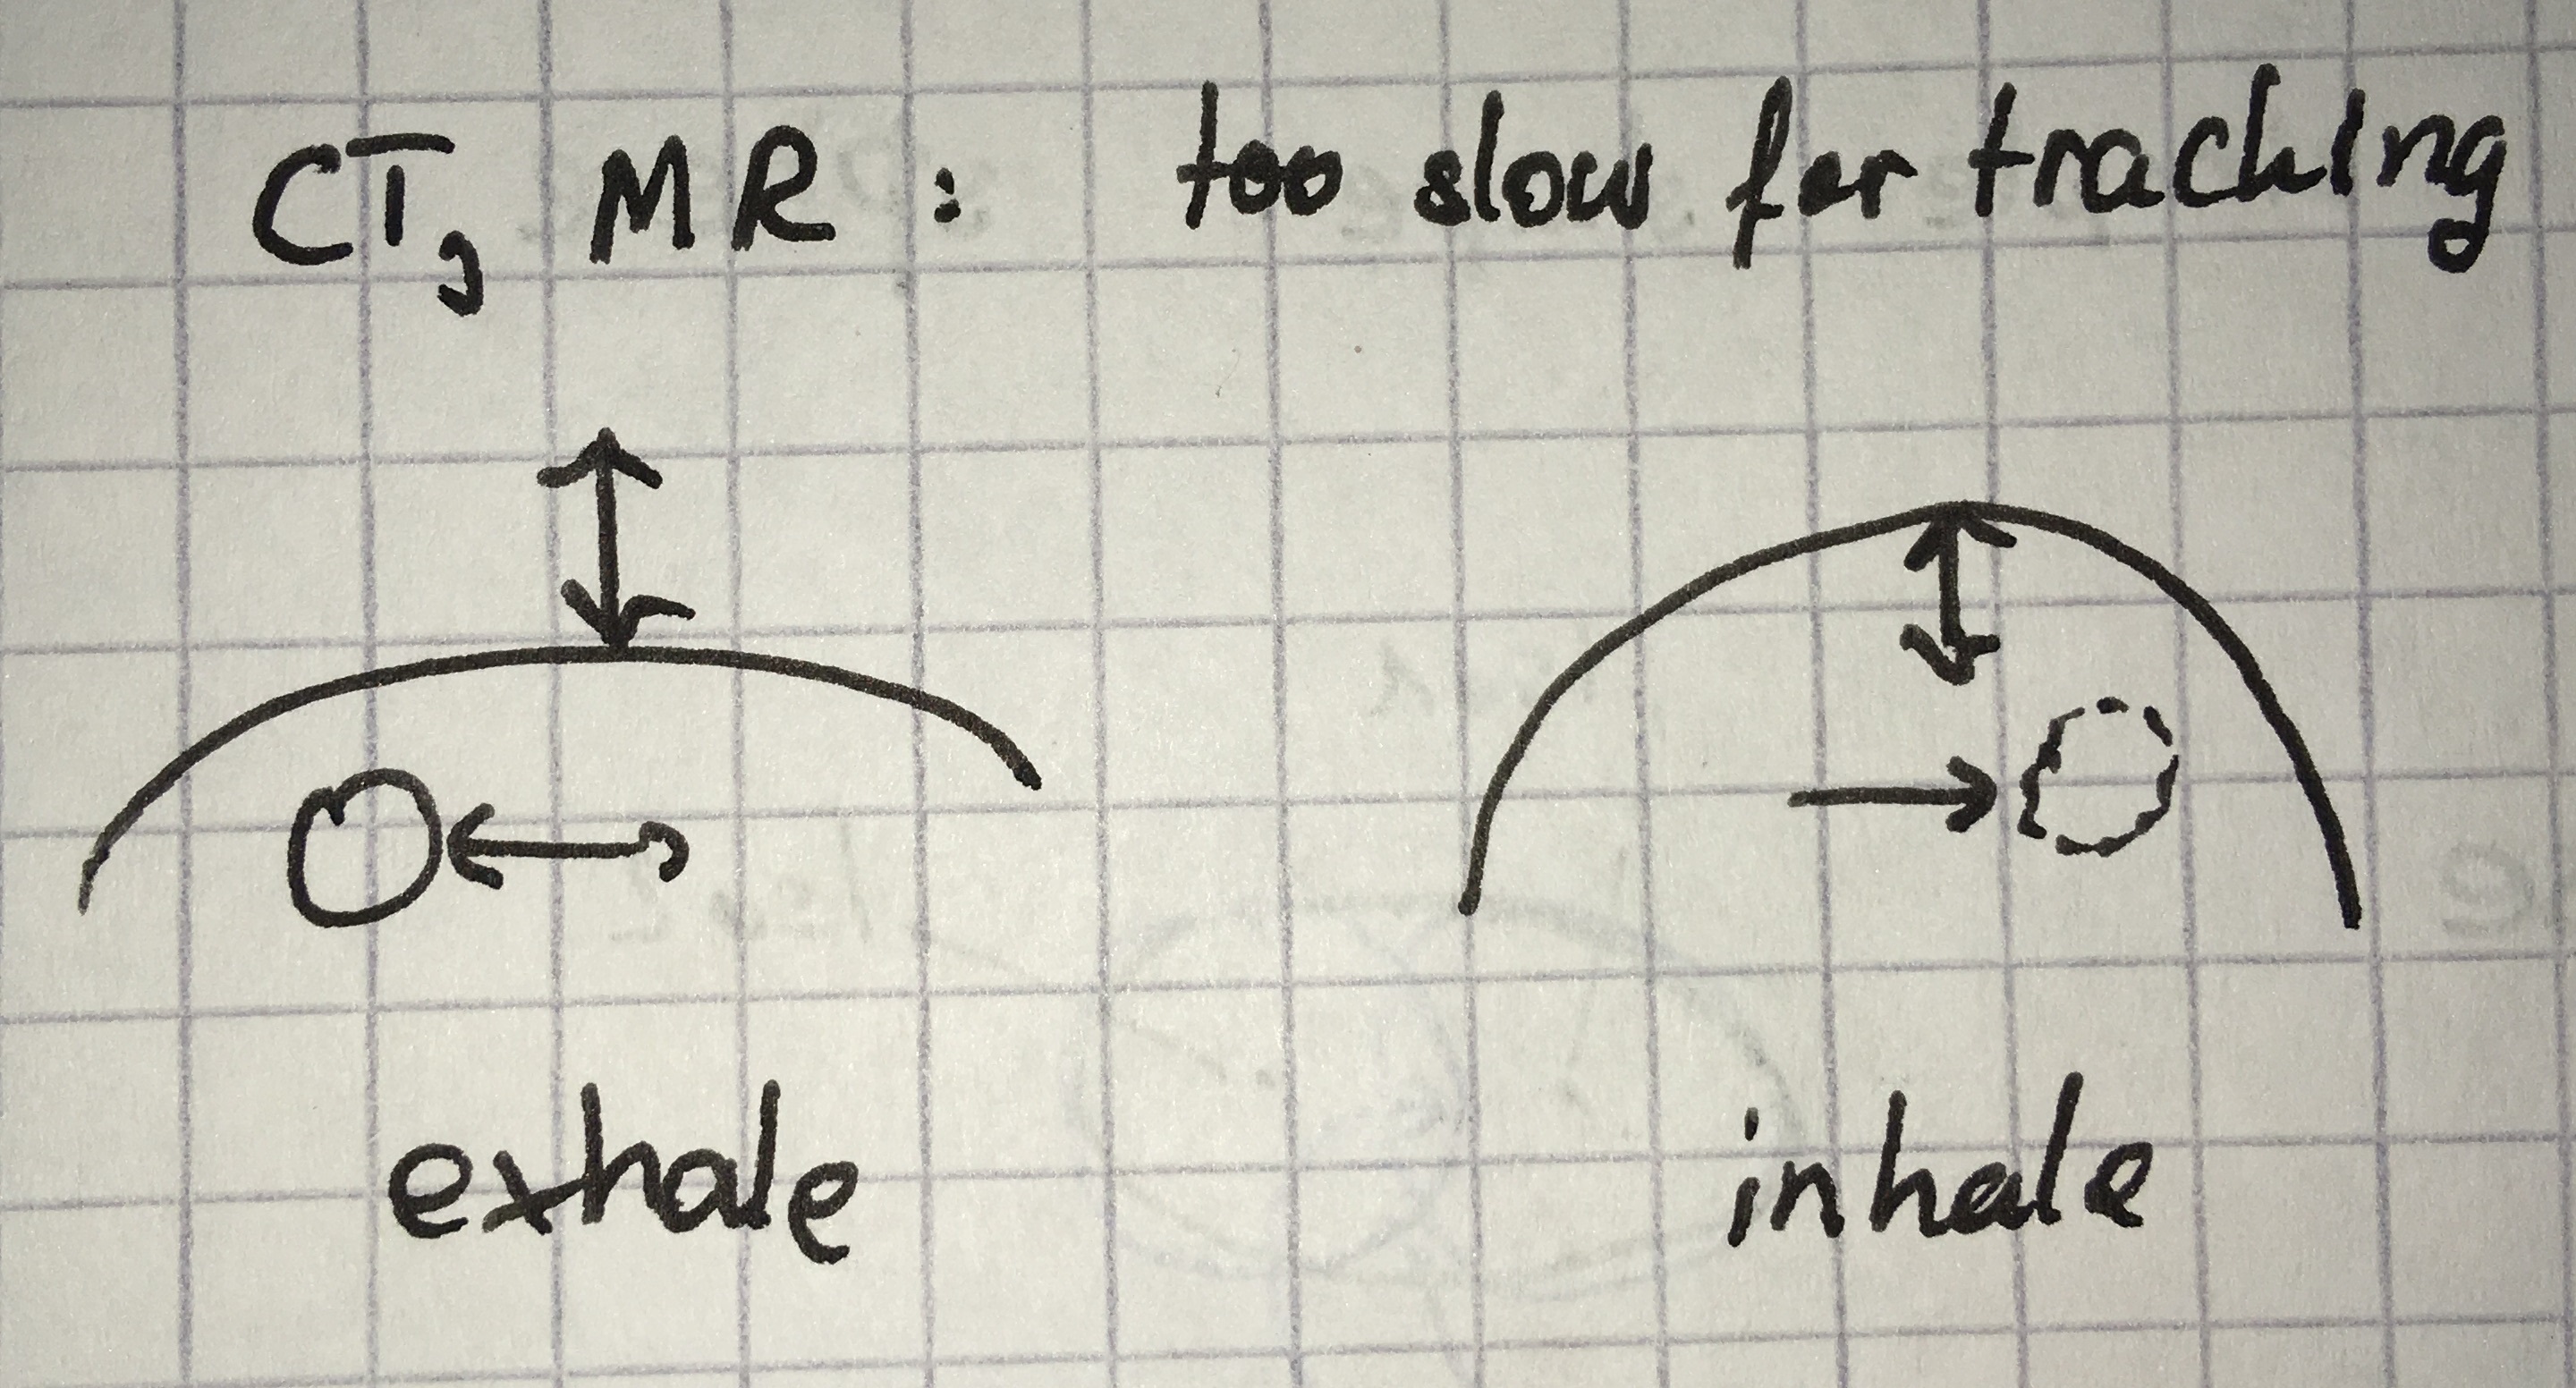 CT, MR : too slow for tracking
exhale
inhale